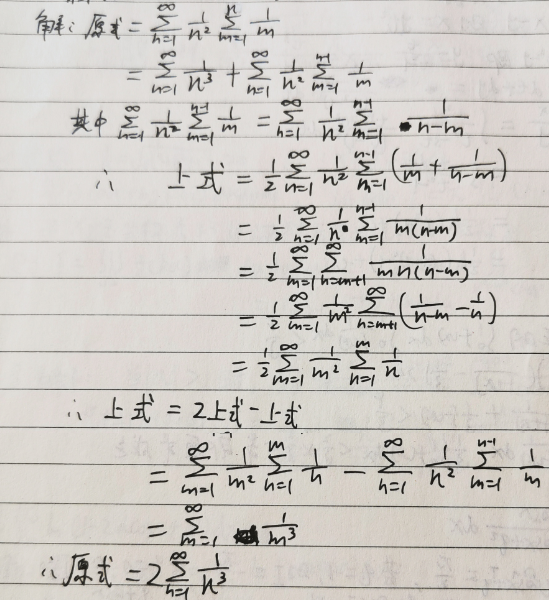 解：原式 = ∑_{n=1}^{∞} 1/n² ∑_{m=1}^{n} 1/m
= ∑_{n=1}^{∞} 1/n³ + ∑_{n=1}^{∞} 1/n² ∑_{m=1}^{n-1} 1/m
其中 ∑_{n=1}^{∞} 1/n² ∑_{m=1}^{n-1} 1/m = ∑_{n=1}^{∞} 1/n² ∑_{m=1}^{n-1} 1/(n-m)
∴ 上式 = 1/2 ∑_{n=1}^{∞} 1/n² ∑_{m=1}^{n-1} (1/m + 1/(n-m))
= 1/2 ∑_{n=1}^{∞} 1/n ∑_{m=1}^{n-1} 1/(m(n-m))
= 1/2 ∑_{m=1}^{∞} ∑_{n=m+1}^{∞} 1/(mn(n-m))
= 1/2 ∑_{m=1}^{∞} 1/m² ∑_{n=m+1}^{∞} (1/(n-m) - 1/n)
= 1/2 ∑_{m=1}^{∞} 1/m² ∑_{n=1}^{m} 1/n
∴ 上式 = 2上式 - 上式
= ∑_{m=1}^{∞} 1/m² ∑_{n=1}^{m} 1/n - ∑_{n=1}^{∞} 1/n² ∑_{m=1}^{n-1} 1/m
= ∑_{m=1}^{∞} 1/m³
∴ 原式 = 2∑_{n=1}^{∞} 1/n³